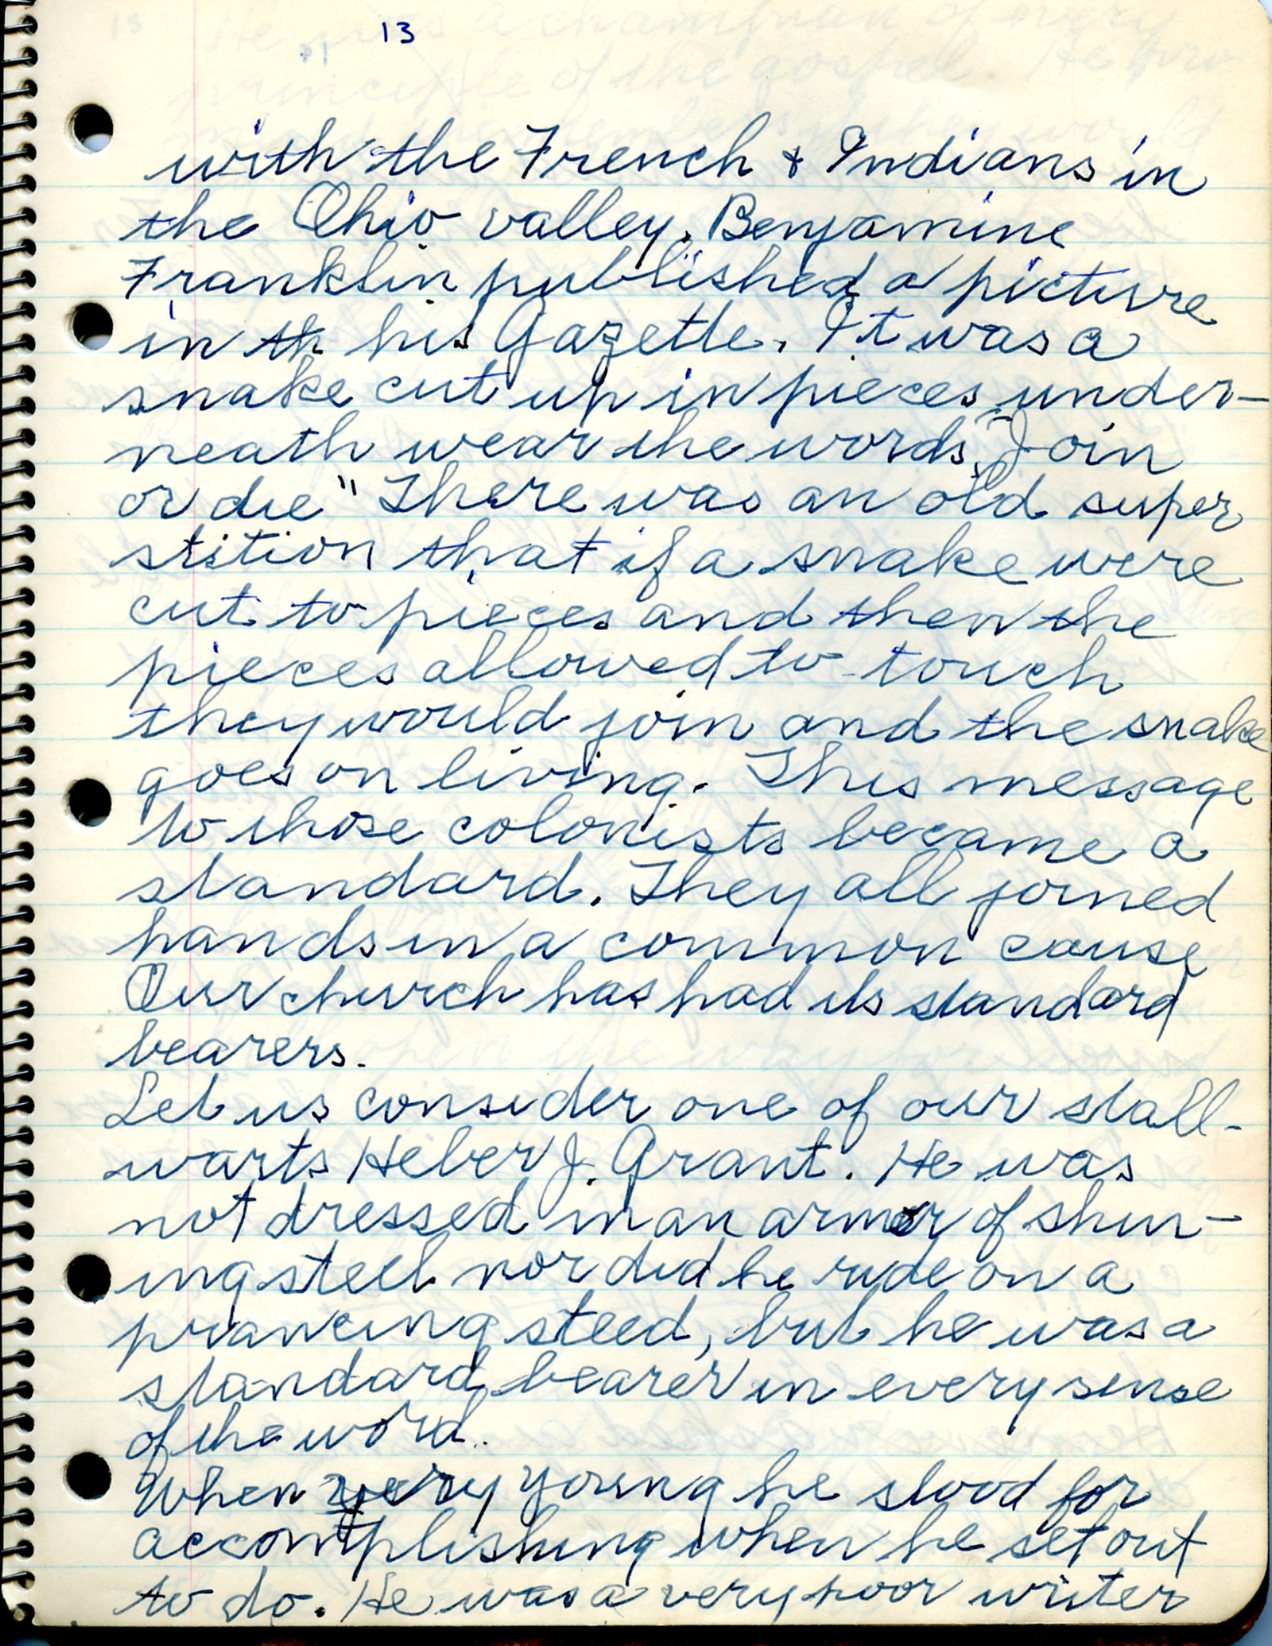 13
with the French & Indians in
the Ohio valley. Benjamine
Franklin published a picture
in th his Gazette. It was a
snake cut up in pieces under-
neath wear the words, "Join
or die" There was an old super
stition that if a snake were
cut to pieces and then the
pieces allowed to touch
they would join and the snake
goes on living. This message
to those colonists became a
standard. They all joined
hands in a common cause
Our church has had its standard
bearers.
Let us consider one of our stall-
warts Heber J. Grant. He was
not dressed in an armor of shin-
ing steel nor did he ride on a
prancing steed, but he was a
standard bearer in every sense
of the word.
When very young he stood for
accomplishing when he set out
to do. He was a very poor writer